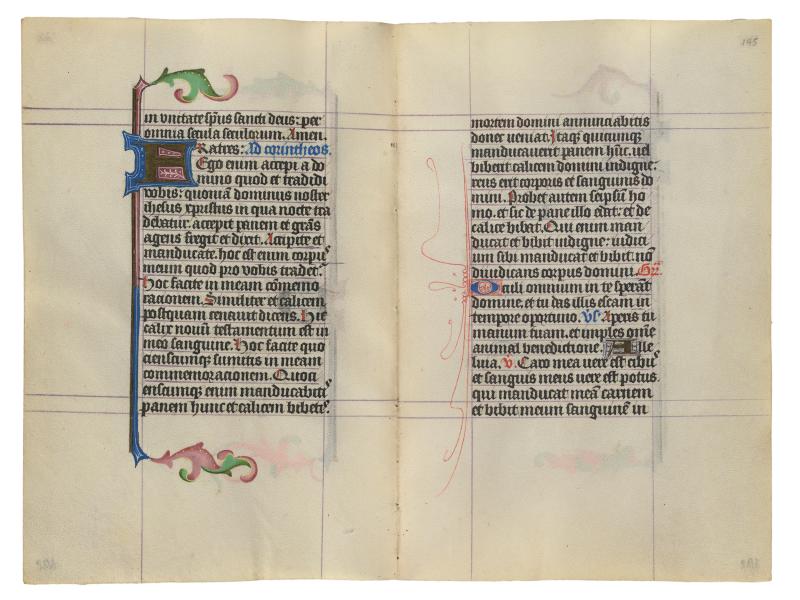 in vnitate sp̅us sancti deus: per
omnia secula seculorum. Amen.
Fratres: Ad corintheos.
Ego enim accepi a do
mino quod et tradidi
vobis: quonia̅ dominus noster
ihesus xpristus in qua nocte tra
debatur. accepit panem et gra̅s
agens fregit et dixit. Accipite et
manducate. hoc est enim corpuˢ
meum quod pro vobis tradet᷑.
Hoc facite in meam co̅memo
racionem. Similiter et calicem
postquam cenauit dicens. Hic
calix nouu̅ testamentum est in
meo sanguine. Hoc facite quo
cienscumqꝫ sumitis in meam
commemoracionem. Quoci
enscumqꝫ enim manducabitiˢ
panem hunc et calicem bibetiˢ.
195
mortem domini annunciabitis
donec veniat. Itaqꝫ quicunqꝫ
manducauerit panem hu̅c. uel
biberit calicem domini indigne:
reus erit corporis et sanguinis do
mini. Probet autem seipsu̅ ho
mo. et sic de pane illo edat: et de
calice bibat. Qui enim man
ducat et bibit indigne: iudici
um sibi manducat et bibit. no̅
diiudicans corpus domini. Gr̅.
Oculi omnium in te spera̅t
domine. et tu das illis escam in
tempore oportuno. Vs̅ Aperis tu
manum tuam. et imples om̅e
animal benedictione. Alle
luia. v̅. Caro mea vere est cibuˢ
et sanguis meus vere est potus.
qui manducat mea̅ carnem
et bibit meum sanguine̅ in